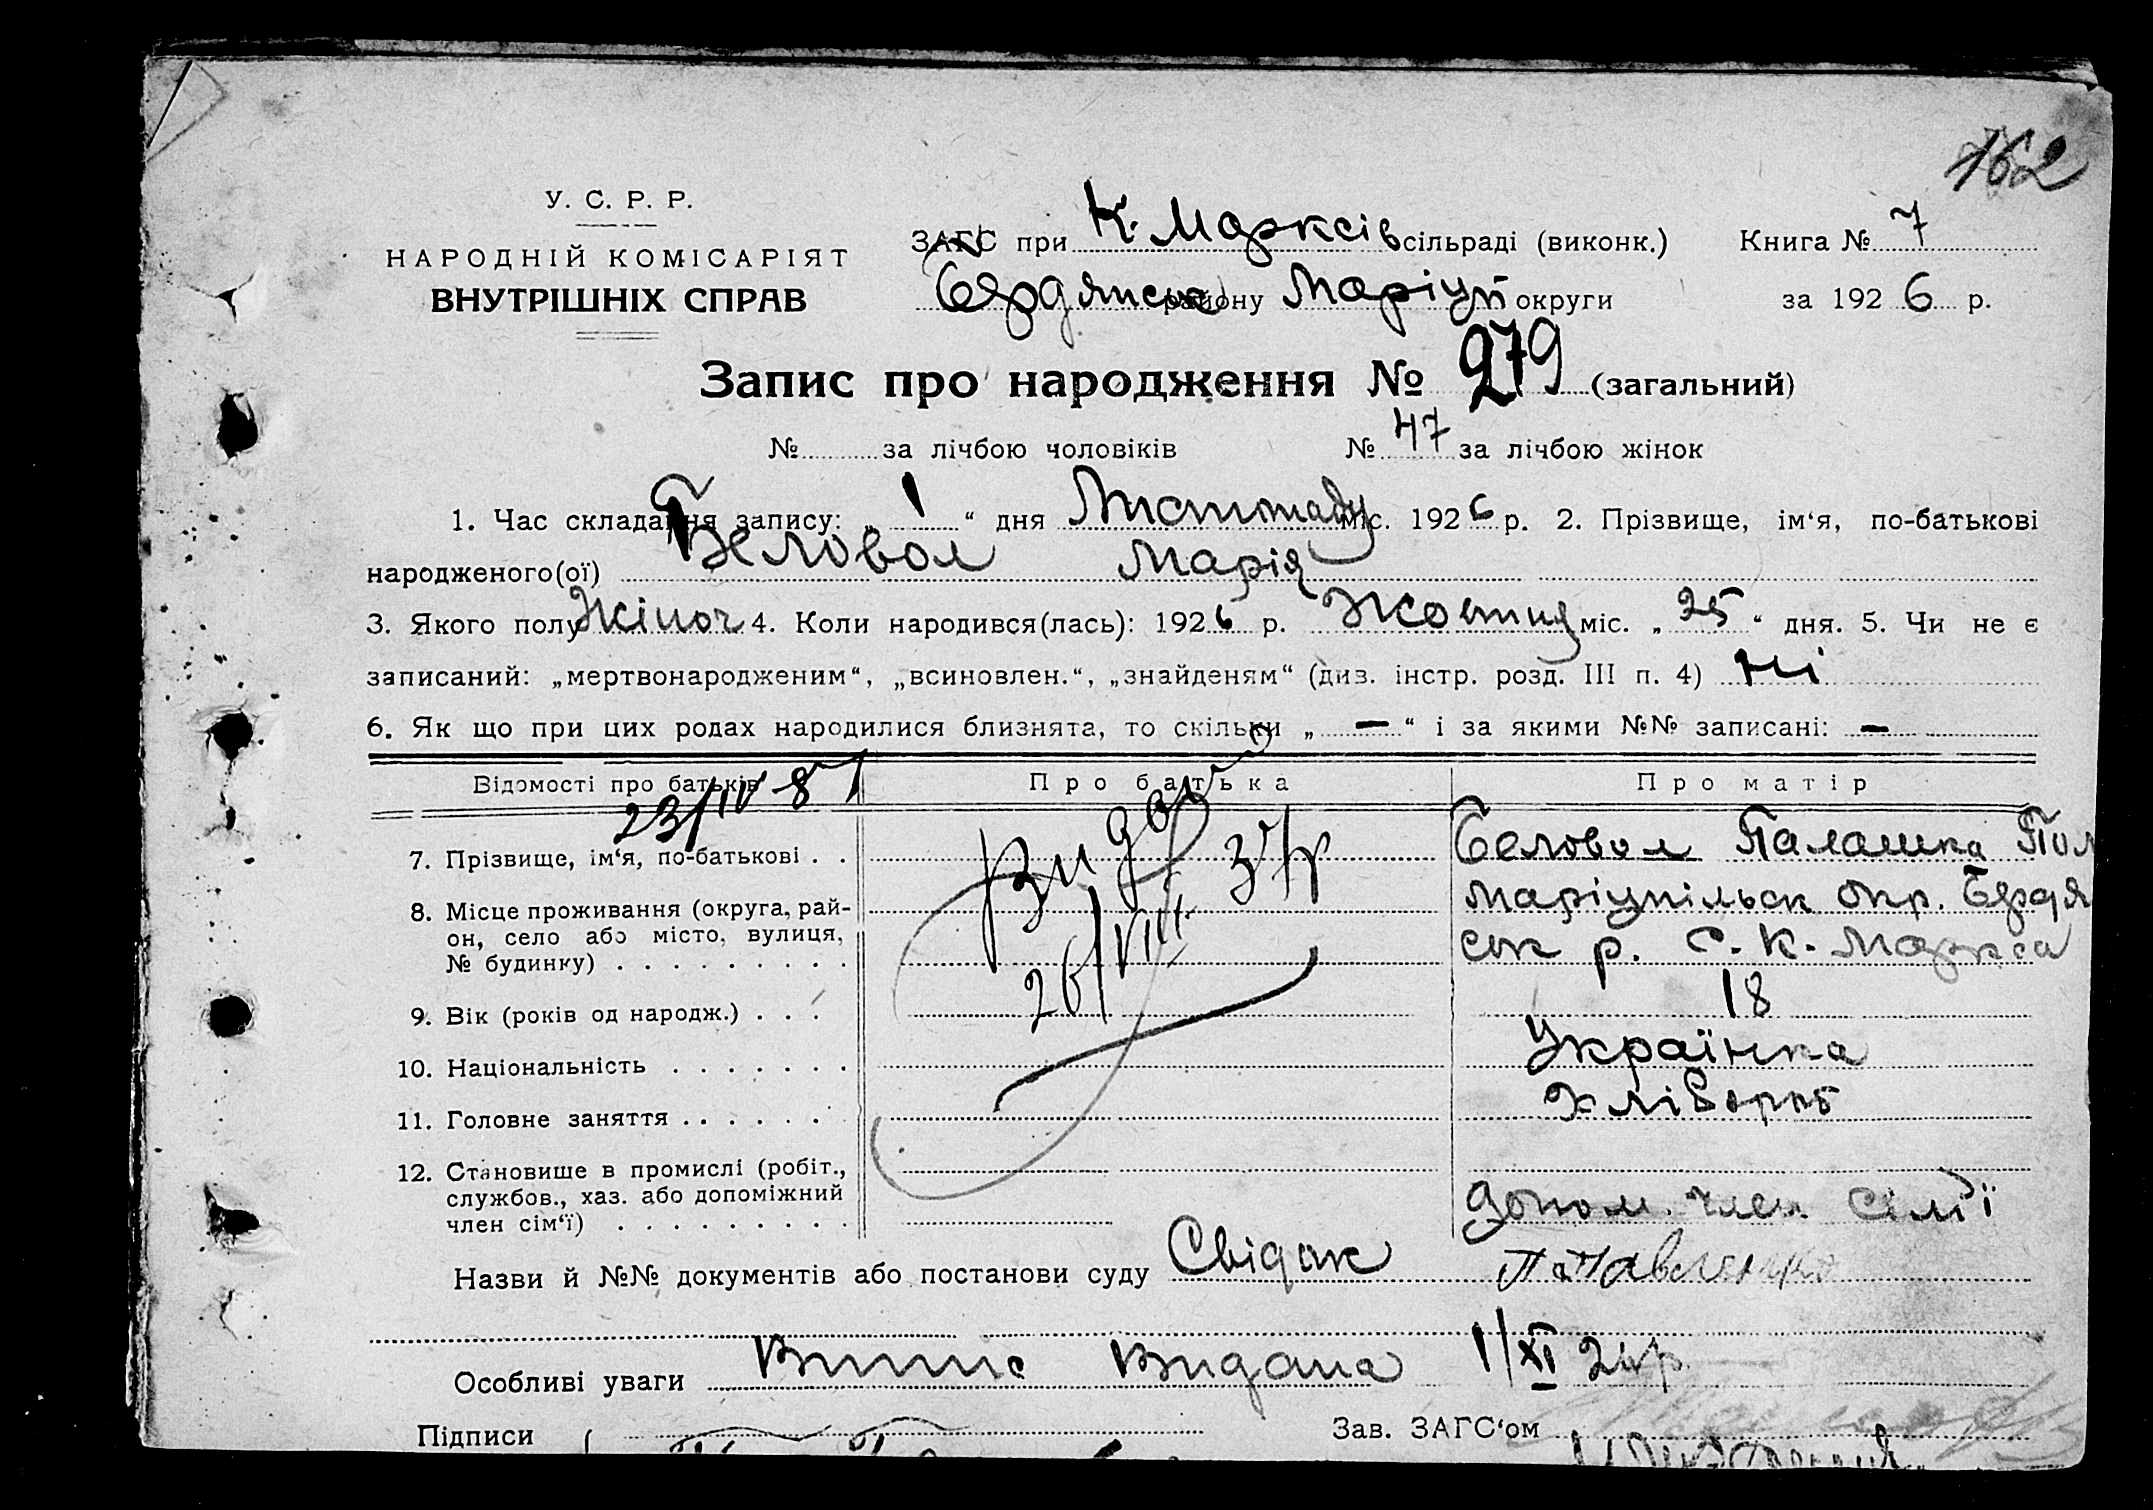 162
У. С. Р. Р.
НАРОДНІЙ КОМІСАРІЯТ
ВНУТРІШНІХ СПРАВ
ЗАГС при К. Марксів сільраді (виконк.) Книга № 7
Бердянськ району Маріуп округи за 1926 р.
Запис про народження № 279 (загальний)
№ за лічбою чоловіків № 47 за лічбою жінок
1. Час складання запису: „ 1 “ дня Листопаду міс. 1926 р. 2. Прізвище, ім‘я, по-батькові
народженого(ої) Беловол Марія
3. Якого полу Жіноч 4. Коли народився(лась): 1926 р. Жовтня міс. „ 25 “ дня. 5. Чи не є
записаний: „мертвонародженим“, „всиновлен.“, „знайденям“ (див. інстр. розд. III п. 4) Ні
6. Як що при цих родах народилися близнята, то скільки „ — “ і за якими №№ записані: —
Відомості про батьків Про батька Про матір
23/IV 87
7. Прізвище, ім‘я, по-батькові . . Беловол Палашка Пол
8. Місце проживання (округа, рай- Маріупільск окр. Бердя
он, село або місто, вулиця, ськ р. С. К. Маркса
№ будинку) . . . . . . . . .
26/VIII
9. Вік (років од народж.) . . . 18
10. Національність . . . . . . . Українка
11. Головне заняття . . . . . . Хлібороб
12. Становище в промислі (робіт.,
службов., хаз. або допоміжний допом. член сім'ї
член сім‘ї) . . . . . . . . .
Назви й №№ документів або постанови суду Свідок Павленко
Особливі уваги Випис Видана 1/XI 26р.
Підписи Зав. ЗАГС‘ом